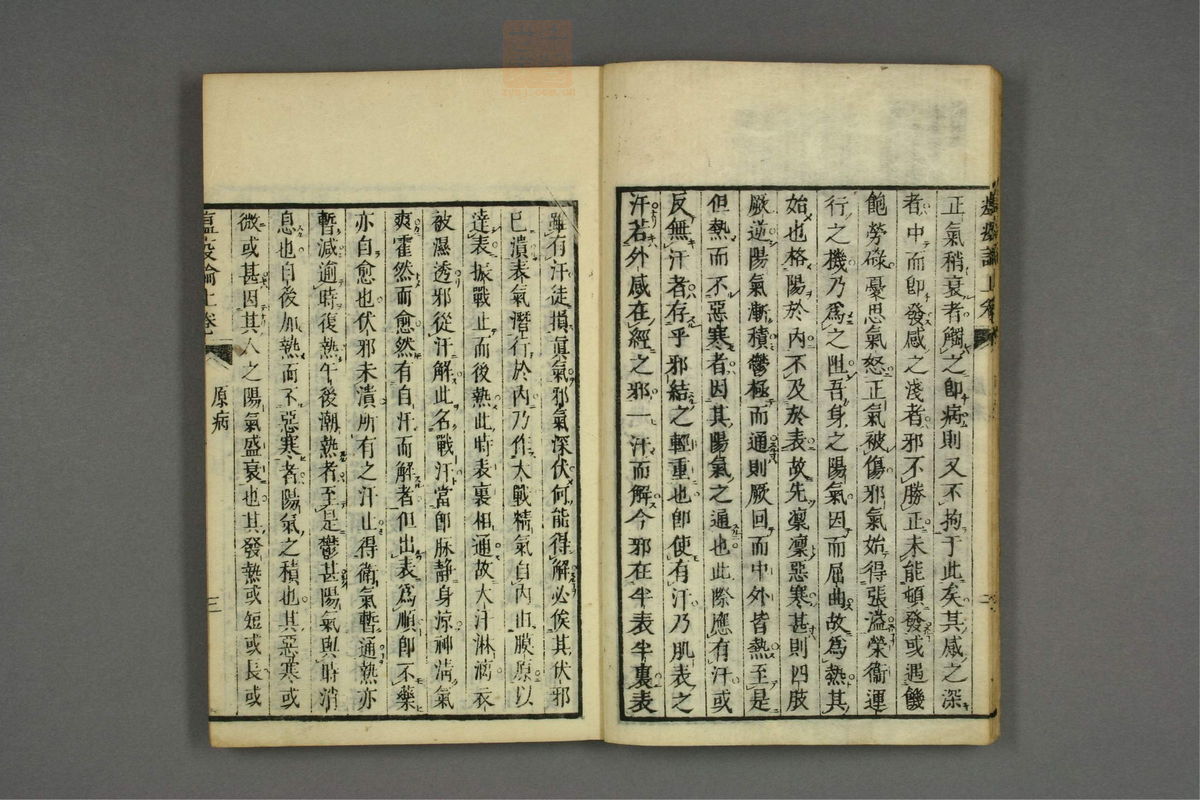 正氣稍衰者觸之卽病則又不拘于此矣其感之深
者中而卽發感之淺者邪不勝正未能頓發或遇饑
飽勞碌憂思氣怒正氣被傷邪氣始得張溢榮衞運
行之機乃爲之阻吾身之陽氣因而屈曲故爲熱其
始也格陽於內不及於表故先凛凛惡寒甚則四肢
厥逆陽氣漸積鬱極而通則厥回而中外皆熱至是
但熱而不惡寒者因其陽氣之通也此際應有汗或
反無汗者存乎邪結之輕重也卽使有汗乃肌表之
汗若外感在經之邪一汗而解今邪在半表半裏表
雖有汗徒損眞氣邪氣深伏何能得解必俟其伏邪
已潰表氣潛行於內乃作大戰精氣自內由膜原以
達表振戰止而後熱此時表裏相通故大汗淋漓衣
被濕透邪從汗解此名戰汗當卽脉靜身涼神淸氣
爽霍然而愈然有自汗而解者但出表爲順卽不藥
亦自愈也伏邪未潰所有之汗止得衞氣暫通熱亦
暫減逾時復熱午後潮熱者至是鬱甚陽氣與時消
息也自後加熱而不惡寒者陽氣之積也其惡寒或
微或甚因其人之陽氣盛衰也其發熱或短或長或
瘟疫論上卷 原病 三